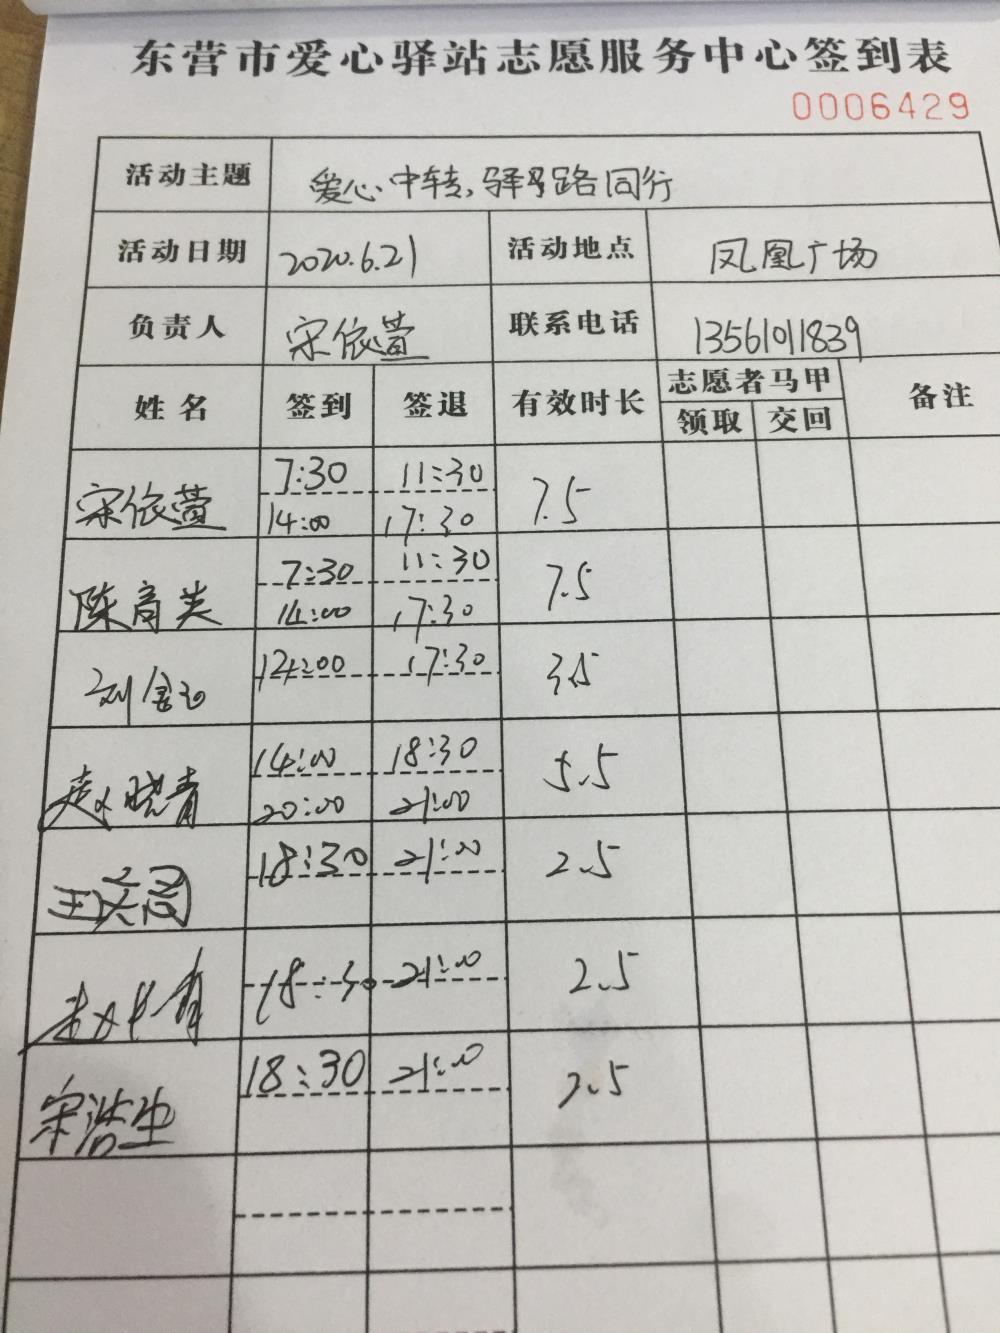 东营市爱心驿站志愿服务中心签到表
0006429
活动主题 爱心中转,驿路同行
活动日期 2020.6.21 活动地点 凤凰广场
负责人 宋依萱 联系电话 13561011839
姓名 签到 签退 有效时长 志愿者马甲 备注
领取 交回
宋依萱 7:30 11:30 7.5
14:00 17:30
陈育英 7:30 11:30 7.5
14:00 17:30
刘金 14:00 17:30 3.5
赵晓青 14:00 18:30 5.5
20:00 21:00
王文 18:30 21:00 2.5
18:30 21:00 2.5
宋浩生 18:30 21:00 2.5